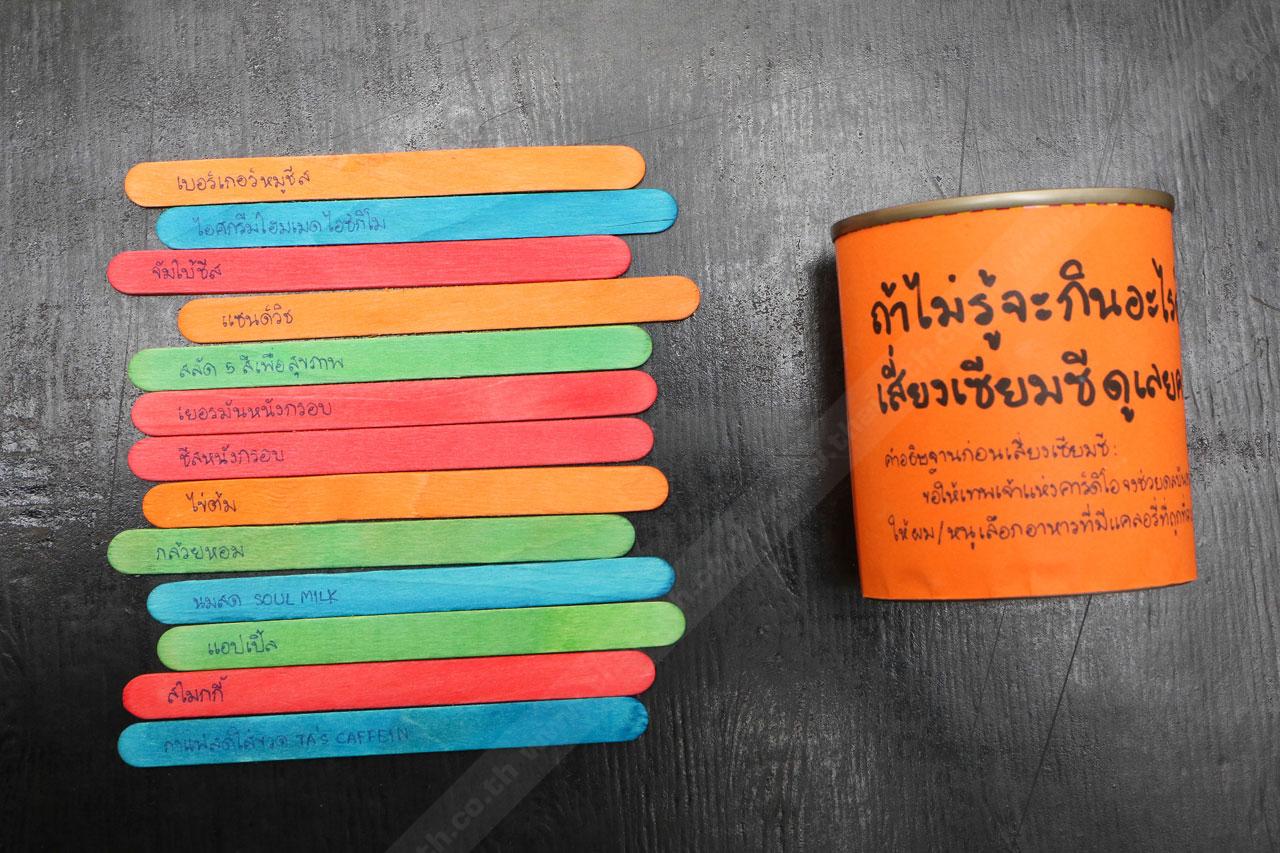 เบอร์เกอร์หมูชีส
ไอศกรีมโฮมเมด ไอซ์กิโม
จัมโบ้ชีส
แซนด์วิช
สลัด 5 สีเพื่อสุขภาพ
เยอรมันหนังกรอบ
ชีสหนังกรอบ
ไข่ต้ม
กล้วยหอม
นมสด SOUL MILK
แอปเปิ้ล
สโมกกี้
กาแฟสดใส่ขวด TA'S CAFFEIN
ถ้าไม่รู้จะกินอะไร
เสี่ยงเซียมซีดูเลย
คำอธิษฐานก่อนเสี่ยงเซียมซี:
ขอให้เทพเจ้าแห่งคาร์ดิโอจงช่วยดลบัน
ให้ผม/หนูเลือกอาหารที่มีแคลอรี่ที่ถูก